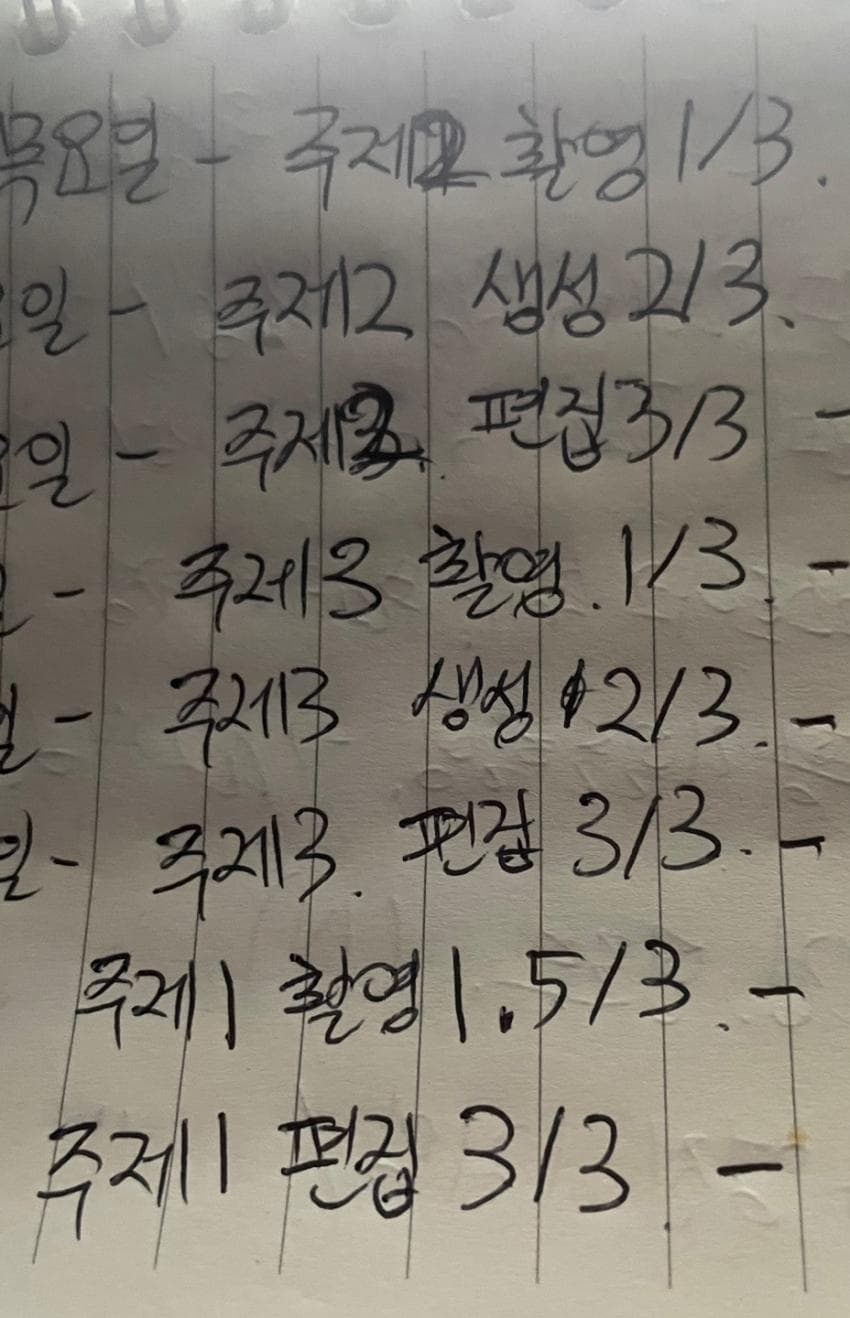 목요일 - 주제2 촬영 1/3.
일 - 주제2 생성 2/3.
요일 - 주제2. 편집 3/3 -
- 주제3 촬영. 1/3. -
일 - 주제3 생성 2/3. -
일 - 주제3. 편집 3/3. -
주제1 촬영 1.5/3. -
주제1 편집 3/3. -